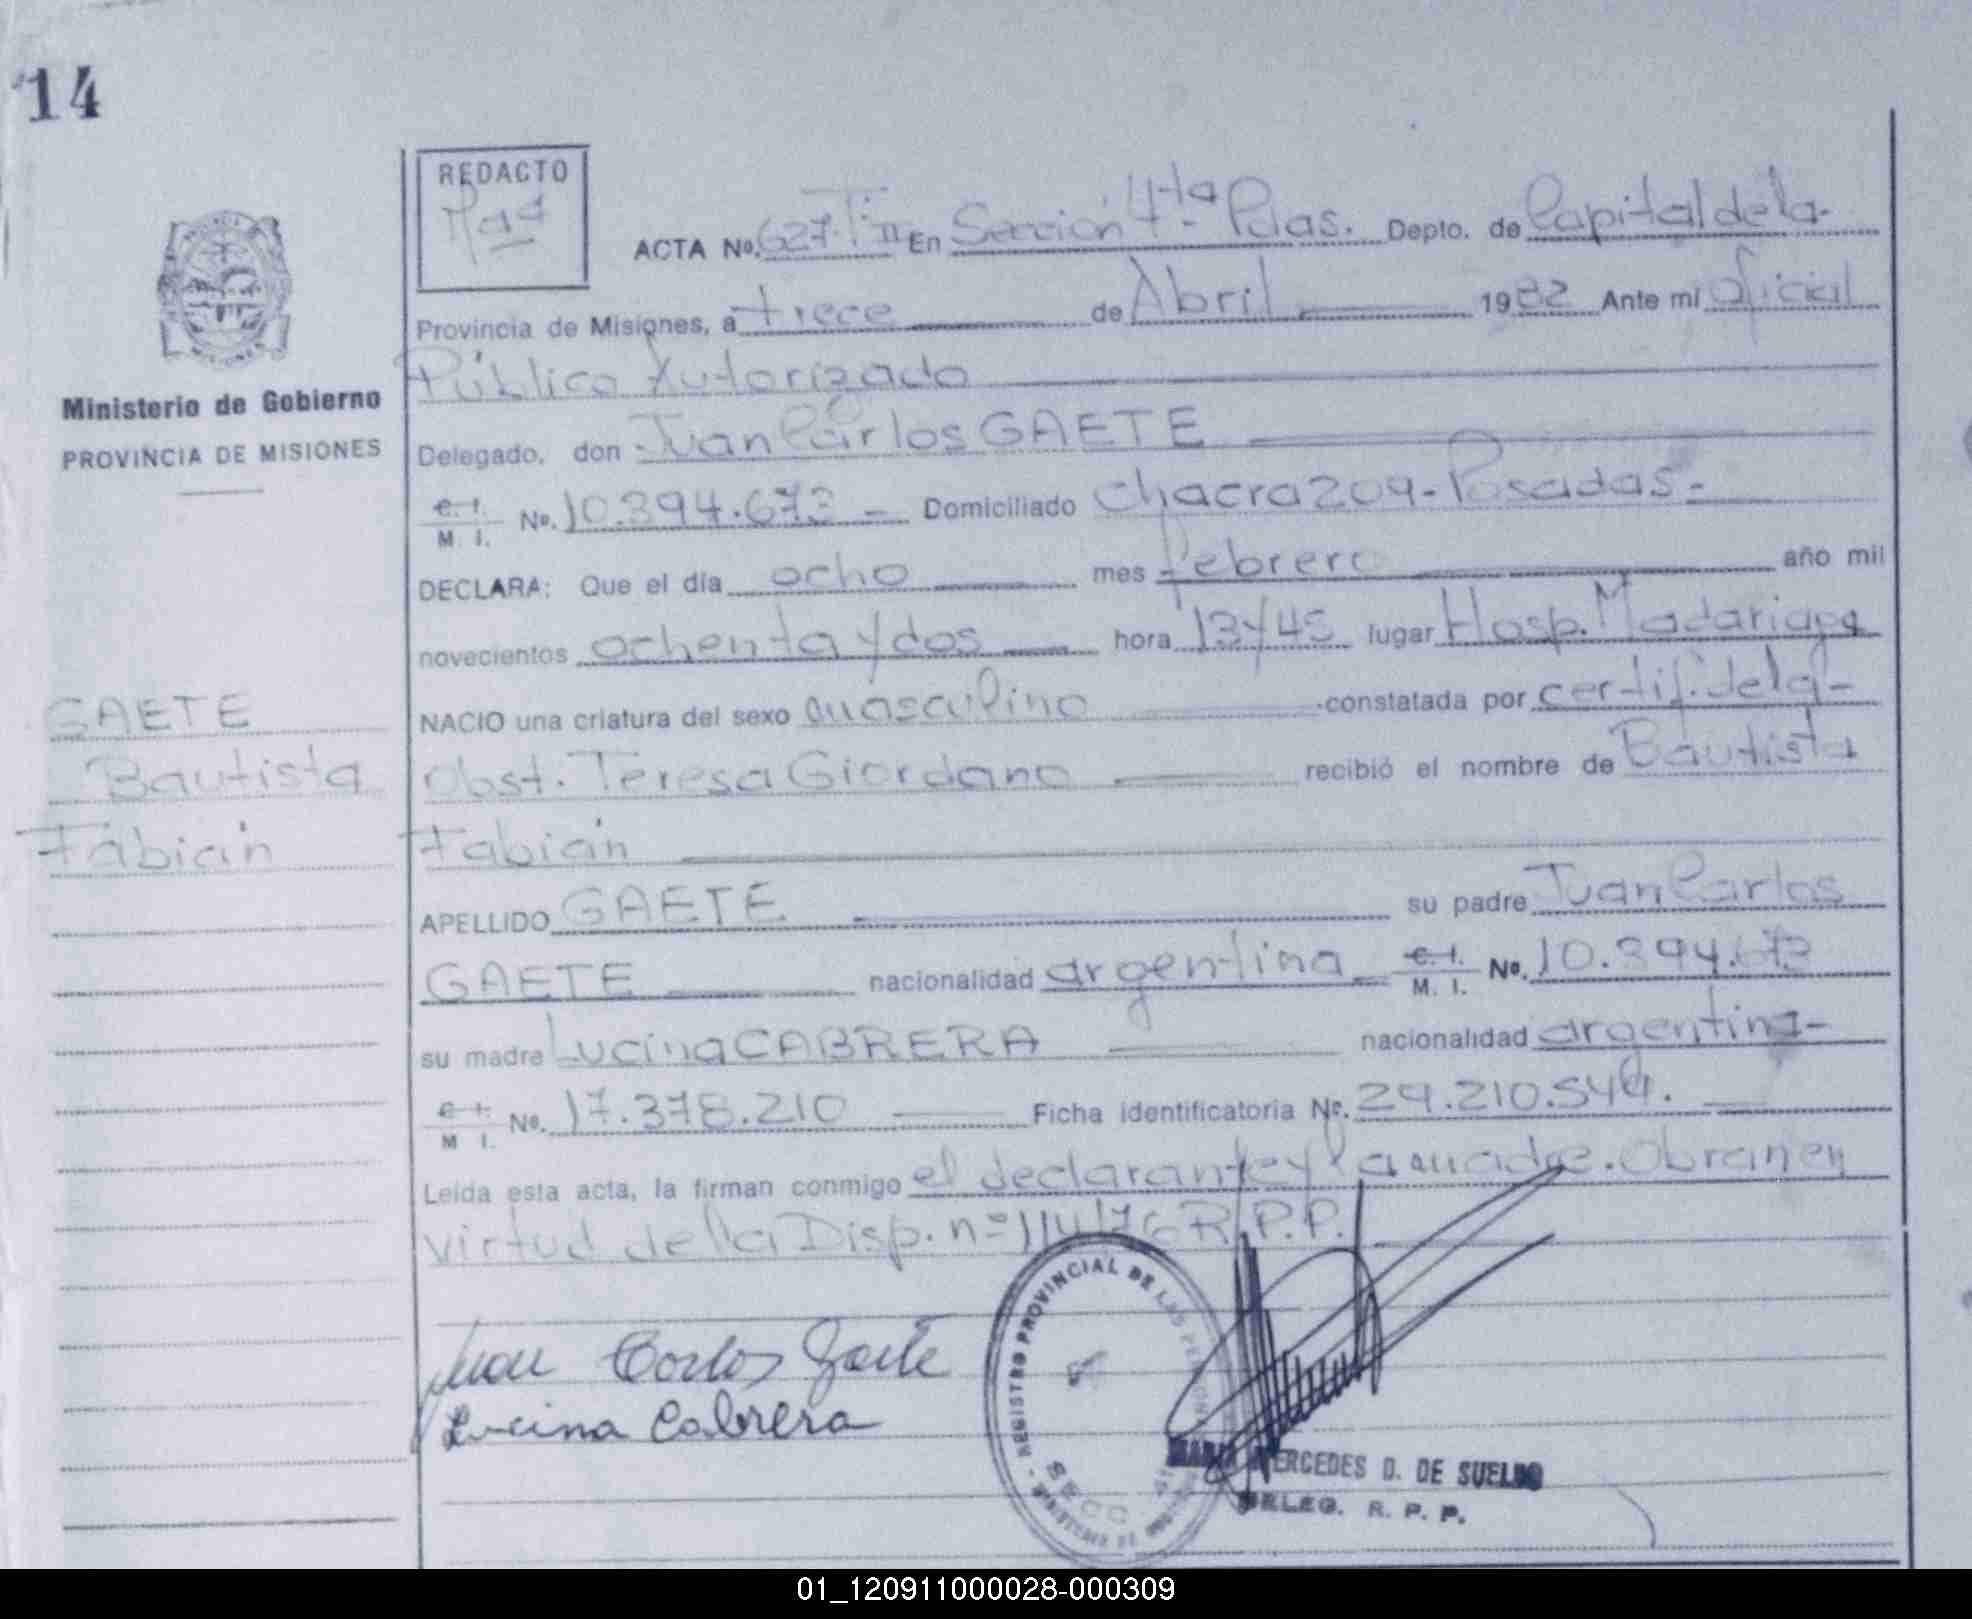 14
REDACTO
ACTA No. 627. T. II En Sección 4ta. Pdas. Depto. de Capital de la-
Provincia de Misiones, a trece de Abril 1982 Ante mí Oficial
Público Autorizado
Ministerio de Gobierno
PROVINCIA DE MISIONES
Delegado, don Juan Carlos GAETE
C. I.
M. I. No. 10.394.673 - Domiciliado Chacra 209 - Posadas -
DECLARA: Que el día ocho mes febrero año mil
novecientos ochenta y dos hora 13y45 lugar Hosp. Madariaga
GAETE
Bautista
Fabián
NACIO una criatura del sexo masculino constatada por certif. de la -
Obst. Teresa Giordano recibió el nombre de Bautista
Fabián
APELLIDO GAETE su padre Juan Carlos
GAETE nacionalidad argentina C. I. M. I. No. 10.394.673
su madre Lucina CABRERA nacionalidad argentina -
C. I.
M. I. No. 17.378.210 Ficha identificatoria No. 29.210.549.
Leída esta acta, la firman conmigo el declarante y la madre. Obran en
virtud de la Disp. nº 114/76 R.P.P.
Juan Carlos Gaete
Lucina Cabrera
REGISTRO PROVINCIAL DE LAS
SECC. 4
MERCEDES D. DE SUELDO
DELEG. R. P. P.
01_120911000028-000309